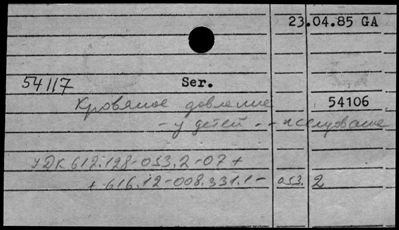 23.04.85 GA
54117 Ser.
Кровяное давление 54106
- у детей - исследование
УДК 612.128-053.2-07 +
+ 616.12-008.331.1-053.2